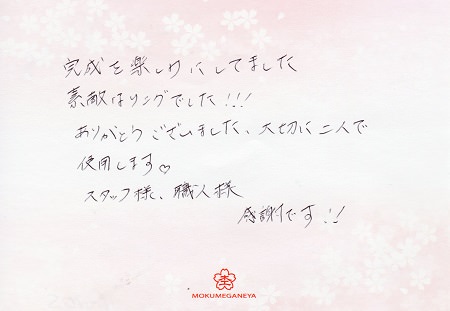 完成を楽しみにしてました
素敵なリングでした!!!
ありがとうございました、大切に二人で
使用します♡
スタッフ様、職人様
感謝です!!
MOKUMEGANEYA